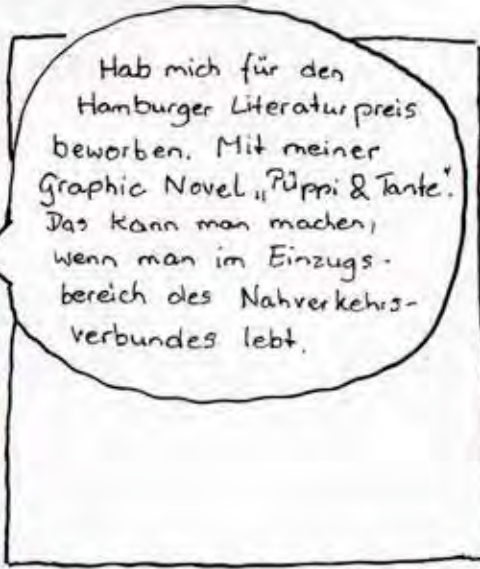 Hab mich für den
Hamburger Literaturpreis
beworben. Mit meiner
Graphic Novel „Püppi & Tante“.
Das kann man machen,
wenn man im Einzugs-
bereich des Nahverkehrs-
verbundes lebt.